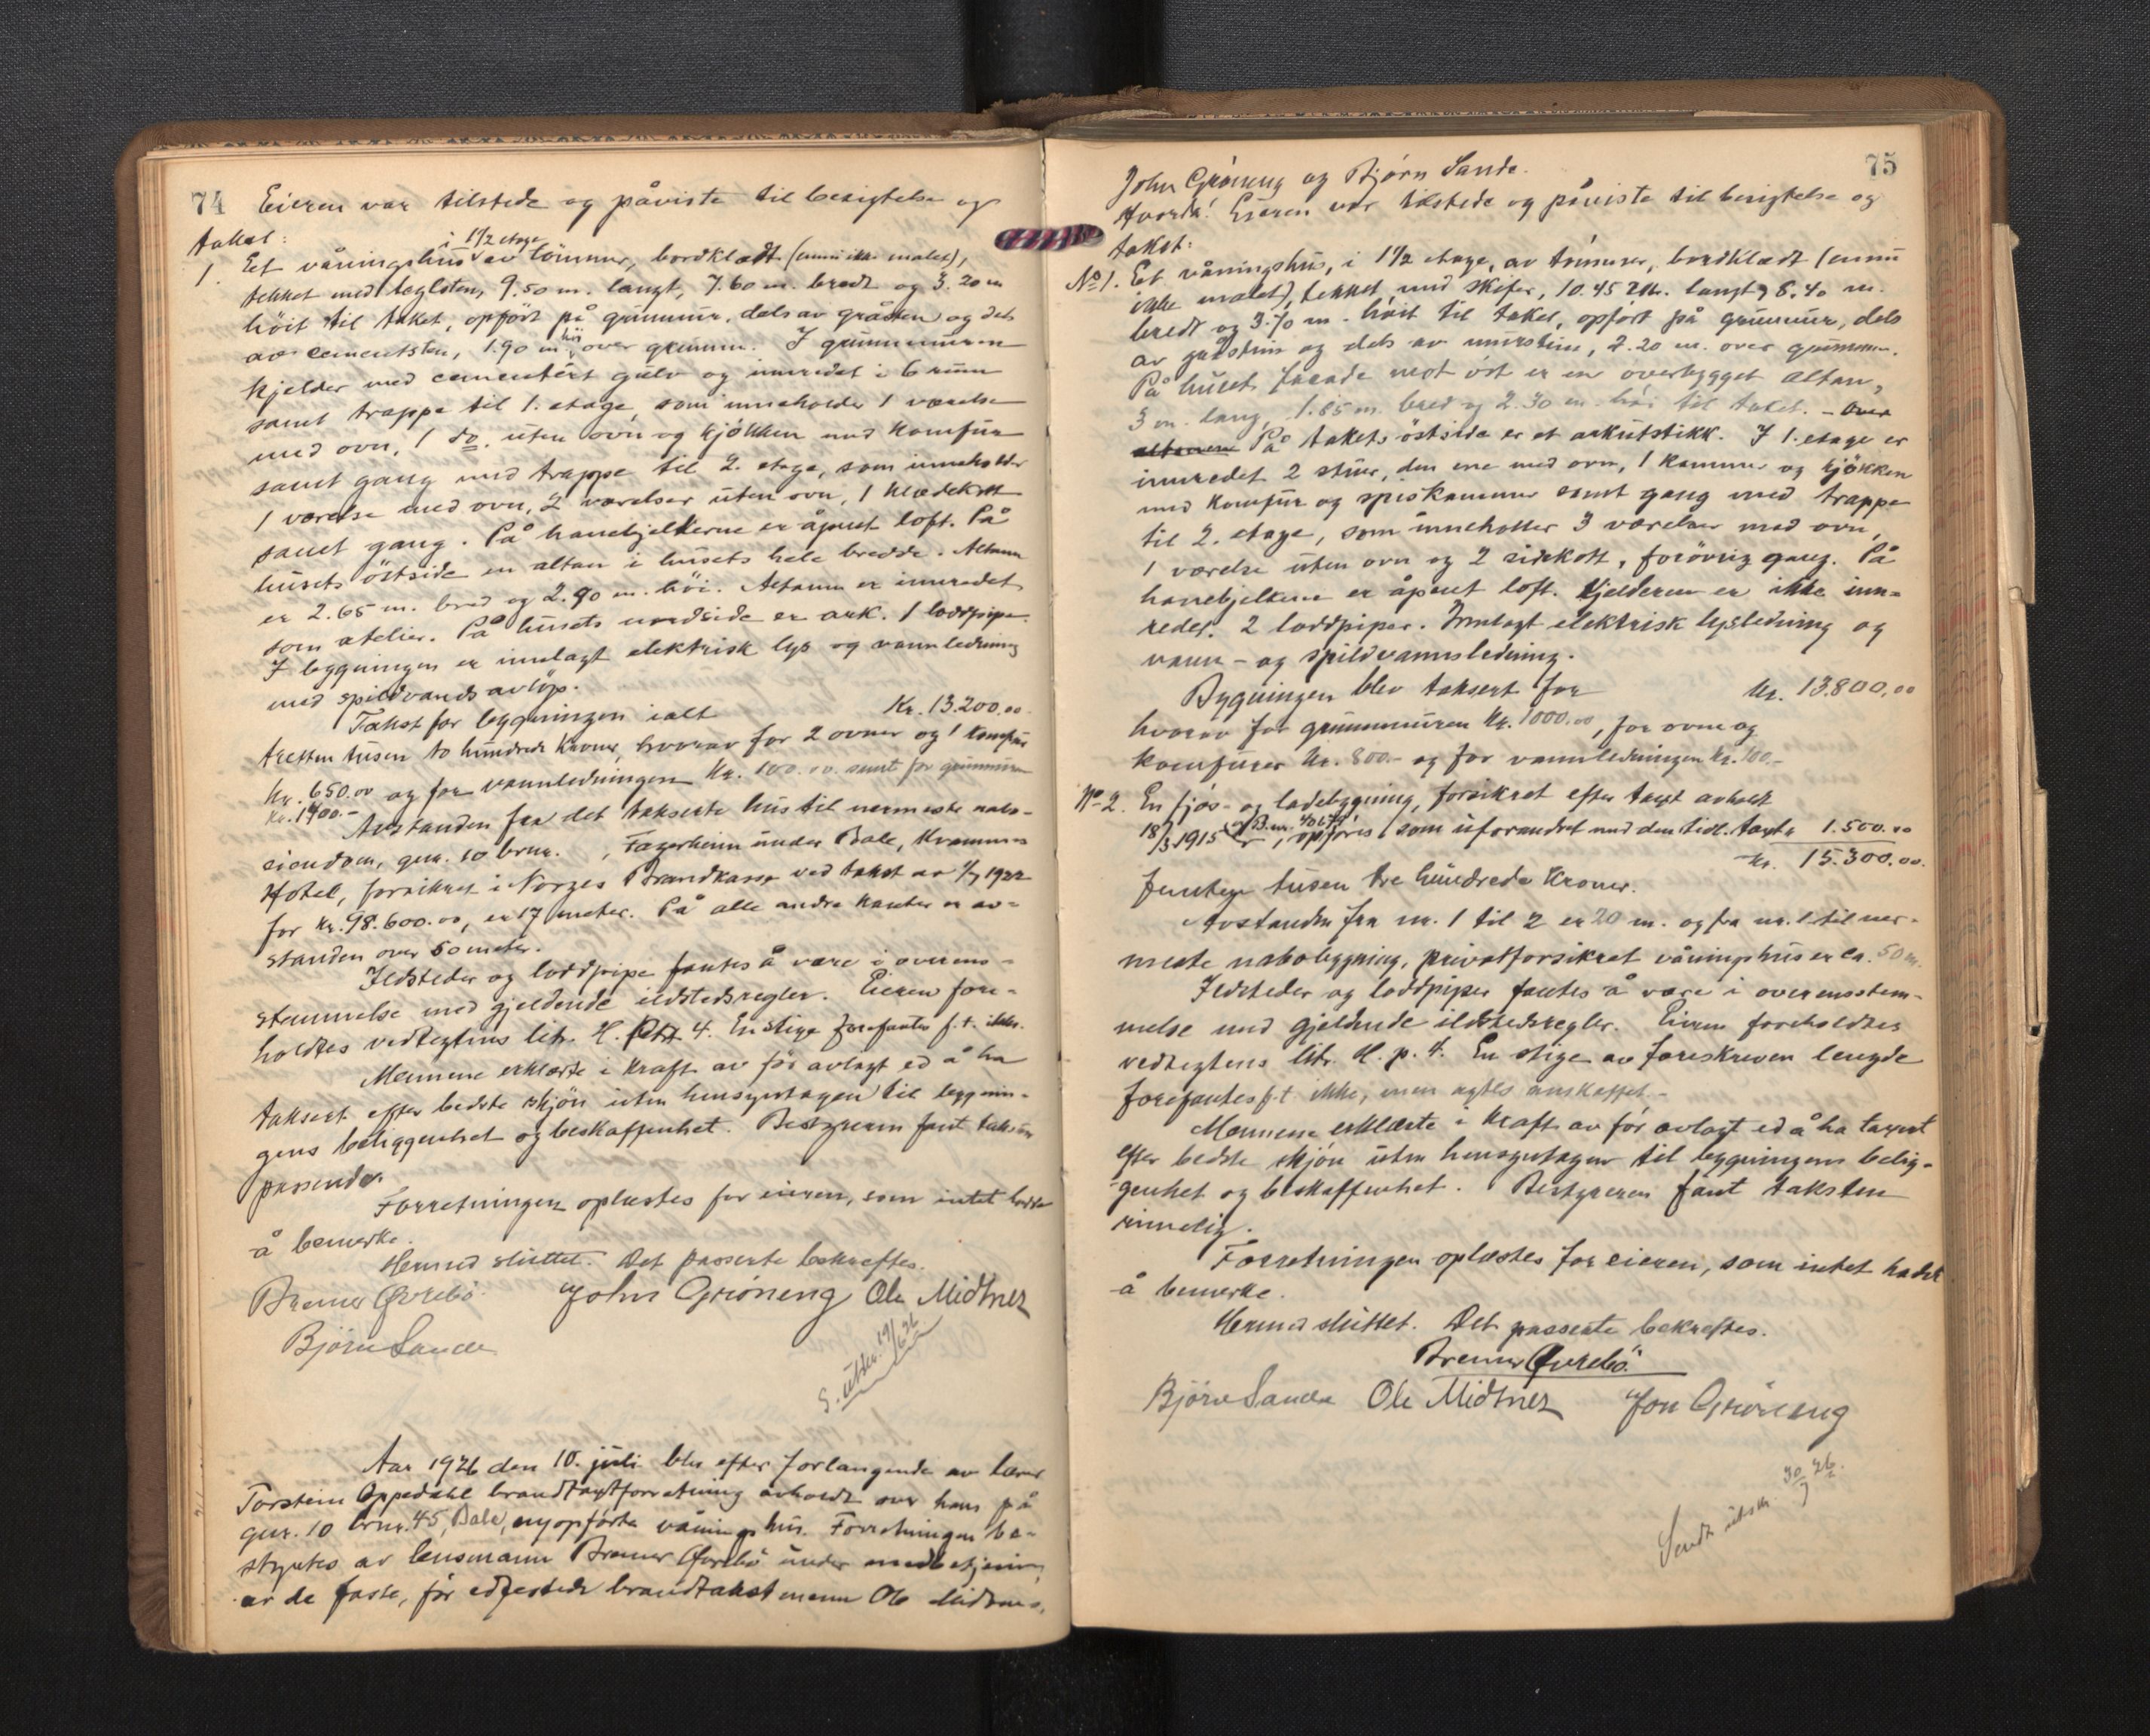 74 Eieren var tilstede og påviste til besigtelse og
takst:
i 1 1/2 etage
1. Et våningshus av tömmer, bordklædt (ennu ikke malet),
tekket med teglsten, 9.50 m. langt, 7.60 m. bredt og 3.20 m
höit til taket, opfört på grunmur, dels av gråsten og dels
av cementsten, 1.90 m höi over grunnen. I grunnmuren
kjelder med cementert gulv og innredet i 6 rum
samt trappe til 1. etage, som inneholder 1 værelse
med ovn, 1 do. uten ovn og kjökken med komfur
samt gang med trappe til 2. etage, som inneholder
1 værelse med ovn, 2 værelser uten ovn, 1 klædekott
samt gang. På hanebjelkerne er åpent loft. På
husets östside en altan i husets hele bredde. Altanen
er 2.65 m. bred og 2.90 m. höi. Altanen er innredet
som atelier. På husets nordside er ark. 1 loddpipe.
I bygningen er innlagt elektrisk lys og vannledning
med spildvandsavlöp.
Takst for bygningen ialt Kr. 13.200.00
tretten tusen to hundrede kroner, hvorav for 2 ovner og 1 komfur
Kr. 650.00 og for vannledningen Kr. 100.00 samt for grunmuren
Kr. 1400.-
Avstanden fra det takserte hus til nermeste nabo-
eiendom, gnr. 10 brnr. , Fagerheim under Bale, Kvamnes
Hotel, forsikret i Norges Brandkasse ved takst av 1/7 1922
for Kr. 98.600.00, er 17 meter. På alle andre kanter er av-
standen over 50 meter.
Ildsteder og loddpipe fantes å være i overens-
stemmelse med gjeldende ildstedsregler. Eieren fore-
holdtes vedtegtens litr. H. 4. En stige forefantes f.t. ikke.
Mennene erklærte i kraft av för avlagt ed å ha
taksert efter bedste skjön uten hensyntagen til bygnin-
gens beliggenhet og beskaffenhet. Bestyreren fant taksten
passende.
Forretningen oplæstes for eieren, som intet hadde
å bemerke.
Hermed sluttet. Det passerte bekreftes.
Bremer Øvrebö John Gröneng Ole Midtnes
Bjørn Sande
S. utskr. 19/6 26
Aar 1926 den 10. juli blev efter forlangende av lærer
Torstein Oppedahl brandtakstforretning avholdt over hans på
gnr. 10 brnr. 45, Bale, nyopførte våningshus. Forretningen be-
styrtes av lensmann Bremer Øvrebö under medbetjening
av de faste, för edfestede brandtakstmenn Ole Midtnes,
75
John Gröneng og Bjørn Sande.
Hvorda! Eieren var tilstede og påviste til besigtelse og
takst:
No 1. Et våningshus, i 1 1/2 etage, av tömmer, bordklædt (ennu
ikke malet), tekket med skifer, 10.45 m. langt, 8.40 m.
bredt og 3.70 m. höit til taket, opfört på grunmur, dels
av gråstein og dels av murstein, 2.20 m. over grunnen.
På husets facade mot öst er en overbygget altan,
3 m. lang, 1.85 m. bred og 2.30 m. höi til taket. - Over
altanen På takets östside er et arkutstikk. I 1. etage er
innredet 2 stuer, den ene med ovn, 1 kammer og kjökken
med komfur og spiskammer samt gang med trappe
til 2. etage, som inneholder 3 værelser med ovn,
1 værelse uten ovn og 2 sidekott, forövrig gang. På
hanebjelkene er åpent loft. Kjelderen er ikke inn-
redet. 2 loddpiper. Innlagt elektrisk lysledning og
vann- og spildvannsledning.
Bygningen blev taksert for Kr. 13.800,00
hvorav for grunnmuren Kr. 1000.00, for ovne og
komfurer Kr. 800.- og for vannledningen Kr. 100.-
No 2. En fjös- og ladebygning, forsikret efter taxt avholdt
18/3 1915, opföres som uforandret med den tidl. taxt 1.500.00
Kr. 15.300.00.
femten tusen tre hundrede kroner.
Avstanden fra nr. 1 til 2 er 20 m. og fra nr. 1 til ner-
meste nabobygning, privatforsikret våningshus er ca. 50 m.
Ildsteder og loddpiper fantes å være i overensstem-
melse med gjeldende ildstedsregler. Eieren foreholdtes
vedtegtens litr. H. p. 4. En stige av foreskreven lengde
forefantes f.t ikke, men agtes anskaffet.-
Mennene erklærte i kraft av för avlagt ed å ha taxert
efter bedste skjön uten hensyntagen til bygningens belig-
genhet og beskaffenhet. Bestyreren fant taksten
rimelig.
Forretningen oplæstes for eieren, som intet hadde
å bemerke.
Hermed sluttet. Det passerte bekreftes.
Bremer Øvrebö.
Bjørn Sande Ole Midtnes Jon Gröneng
Sendt utskr. 30/7 26.